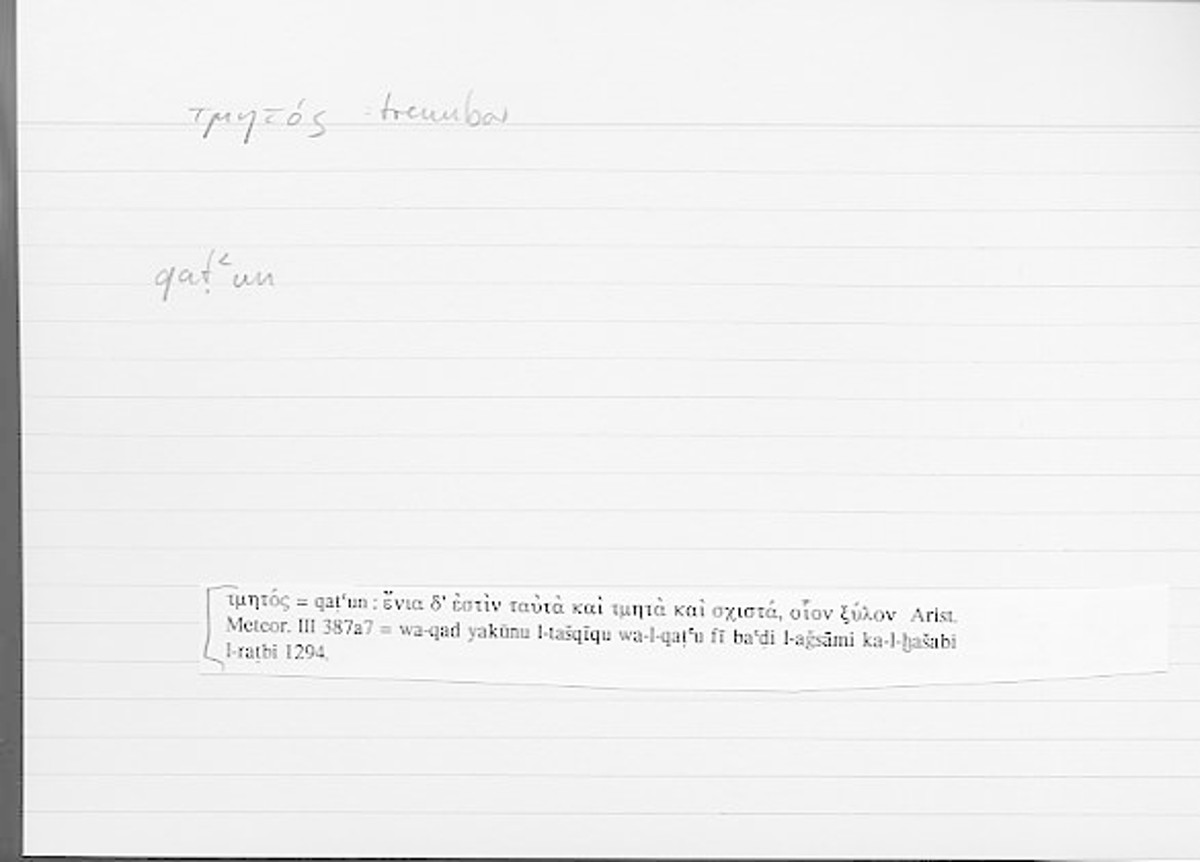 τμητός trennbar
qaṭʿun
τμητός = qaṭʿun : ἔνια δ' ἐστὶν ταὐτὰ καὶ τμητὰ καὶ σχιστά, οἷον ξύλον Arist.
Meteor. III 387a7 = wa-qad yakūnu l-tašqīqu wa-l-qaṭʿu fī baʿḍi l-aǧsāmi ka-l-ḫašabi
l-raṭbi 1294.